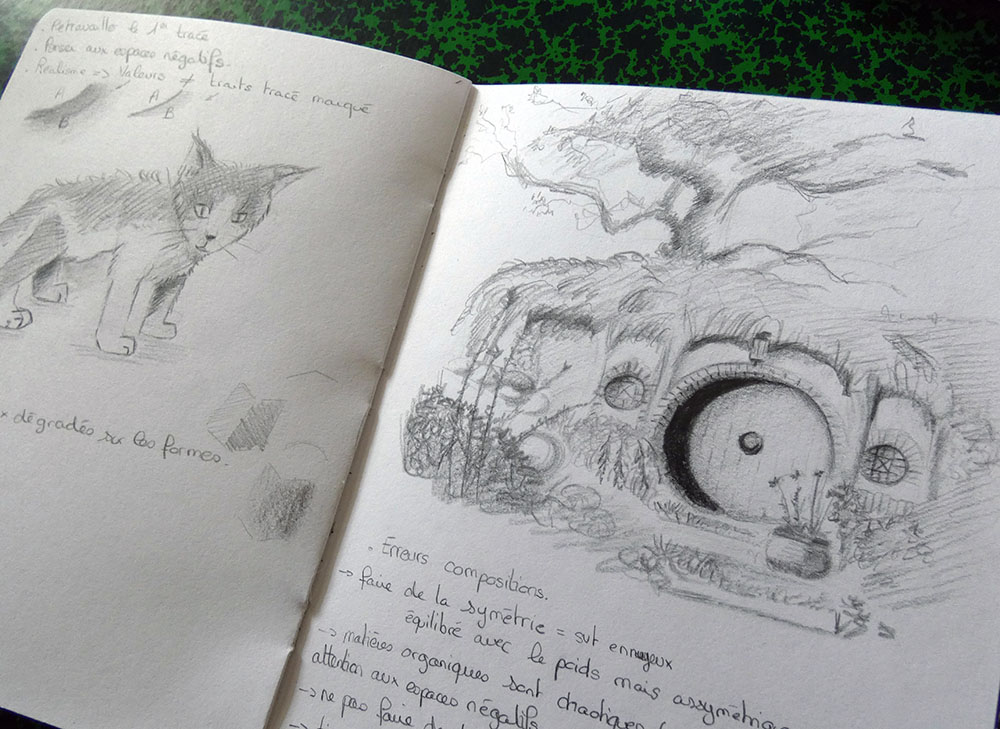 . Retravailler le 1er tracé
. Penser aux espaces négatifs.
. Réalisme => Valeurs ≠ traits tracé marqué
A
B
A
B
x dégradés sur les formes.
. Erreurs compositions.
-> faire de la symétrie = sut ennuyeux
équilibré avec le poids mais assymétrique
-> matières organiques sont chaotiques
attention aux espaces négatifs
-> ne pas faire de